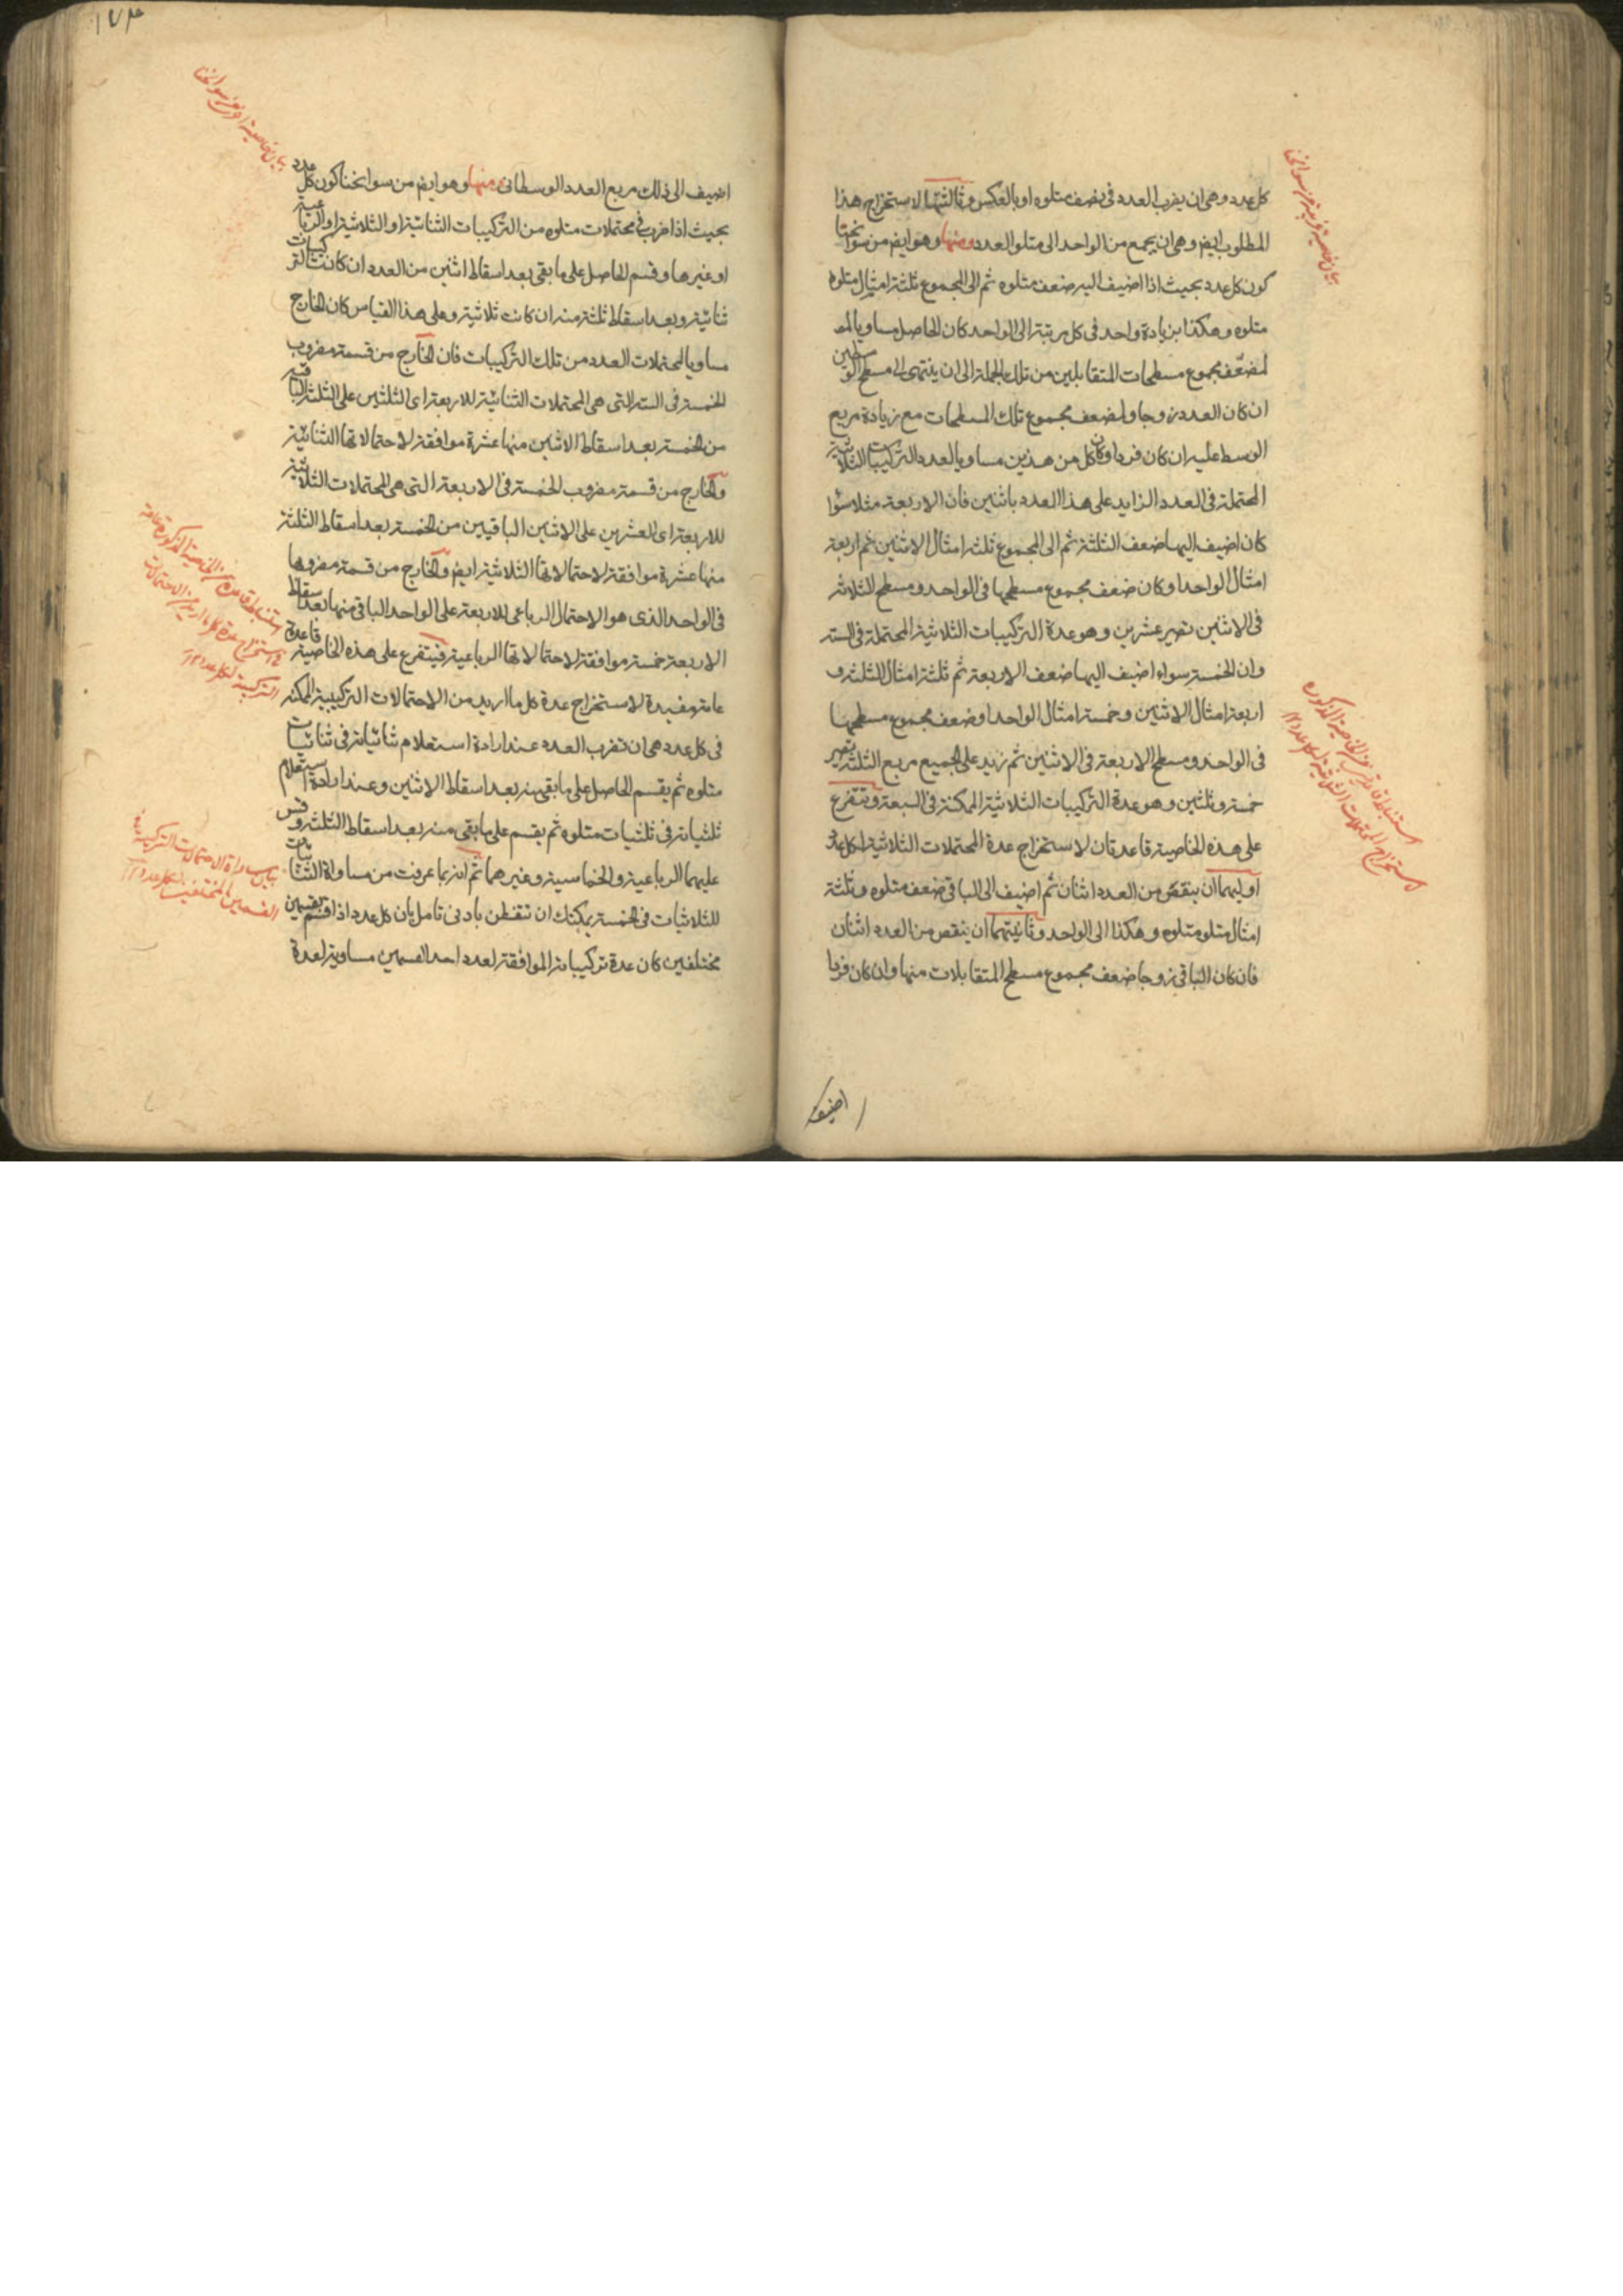 كل عدد وهى ان يضرب العدد فى نصف متلوه او بالعكس وثالثتها لاستخراج هذا
المطلوب ايضا وهى ان يجمع من الواحد الى متلو العدد ومنها وهو ايضا من سوانحنا
كون كل عدد بحيث اذا اضيف اليه ضعف متلوه ثم الى المجموع ثلثة امثال متلوه
متلوه وهكذا بزيادة واحد فى كل مرتبة الى الواحد كان الحاصل مساويا لمضـ
لمضعّف مجموع مسطحات المتقابلين من تلك الجملة الى ان ينتهى الى مسطح الوسطين
ان كان العدد زوجا ولمضعف مجموع تلك المسطحات مع زيادة مربع
الوسط عليه ان كان فردا وكان كل من هذين مساويا لعدد التركيبات الثلاثية
المحتملة فى العدد الزايد على هذا العدد باثنين فان الاربعة مثلا سواء
كان اضيف اليها ضعف الثلثة ثم الى المجموع ثلثة امثال الاثنين ثم اربعة
امثال الواحد او كان ضعف مجموع مسطحها فى الواحد ومسطح الثلاثة
فى الاثنين تصير عشرين وهو عدة التركيبات الثلاثية المحتملة فى الستة
وان الخمسة سواء اضيف اليها ضعف الاربعة ثم ثلثة امثال الثلثة و
اربعة امثال الاثنين وخمسة امثال الواحد او ضعف مجموع مسطحها
فى الواحد ومسطح الاربعة فى الاثنين ثم زيد على الجميع مربع الثلثة تصير
خمسة وثلثين وهو عدة التركيبات الثلاثية الممكنة فى السبعة وتتفرع
على هذه الخاصية قاعدتان لاستخراج عدة المحتملات الثلاثية لكل عدد
اوليهما ان ينقص من العدد اثنان ثم اضيف الى الباقى ضعف متلوه وثلثة
امثال متلو متلوه وهكذا الى الواحد وثانيتهما ان ينقص من العدد اثنان
فان كان الباقى زوجا ضعف مجموع مسطح المتقابلات منها وان كان فردا
اضيف
بيان خاصية اخرى من سوانحنا
استنباط قاعدتين من الخاصية المذكورة
لاستخراج المحتملات الثلاثية لكل عدد
١٧٣
اضيف الى ذلك مربع العدد الوسطانى ومنها وهو ايضا من سوانحنا كون كل عدد
بحيث اذا ضرب فى محتملات متلوه من التركيبات الثنائية او الثلاثية او الرباعية
او غيرها وقسم الحاصل على ما بقى بعد اسقاط اثنين من العدد ان كانت التركيبات
ثنائية وبعد اسقاط ثلثة منه ان كانت ثلاثية وعلى هذا القياس كان الخارج
مساويا لمحتملات العدد من تلك التركيبات فان الخارج من قسمة مضروب
الخمسة فى الستة التى هى المحتملات الثنائية للاربعة اى الثلثين على الثلثة الباقية
من الخمسة بعد اسقاط الاثنين منها عشرة موافقة لاحتمالاتها الثنائية
والخارج من قسمة مضروب الخمسة فى الاربعة التى هى المحتملات الثلاثية
للاربعة اى العشرين على الاثنين الباقيين من الخمسة بعد اسقاط الثلثة
منها عشرة موافقة لاحتمالاتها الثلاثية ايضا والخارج من قسمة مضروبها
فى الواحد الذى هو الاحتمال الرباعى للاربعة على الواحد الباقى منها بعد اسقاط
الاربعة خمسة موافقة لاحتمالاتها الرباعية فيتفرع على هذه الخاصية قاعدة
عامة مفيدة لاستخراج عدة كل ما اريد من الاحتمالات التركيبية الممكنة
فى كل عدد هى ان تضرب العدد عند ارادة استعلام ثنائياته فى ثنائيات
متلوه ثم يقسم الحاصل على ما بقى منه بعد اسقاط الاثنين وعند ارادة استعلام
ثلثياته فى ثلثيات متلوه ثم يقسم على ما بقى منه بعد اسقاط الثلثة وقس
عليهما الرباعية والخماسية وغيرهما ثم انه بما عرفت من مساواة الثنائيات
للثلاثيات فى الخمسة يمكنك ان تتفطن بادنى تامل بان كل عدد اذا قسم بقسمين
مختلفين كان عدة تركيباته الموافقة لعدد احد القسمين مساوية لعدة
بيان خاصية اخرى من سوانحنا
استنباط قاعدة من الخاصية المذكورة عامة
لاستخراج عدة كل ما اريد من الاحتمالات
التركيبية لكل عدد
بيان مساواة الاحتمالات التركيبية
القسمين المختلفين لكل عدد